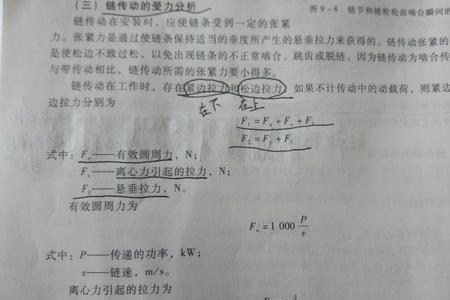 (三) 链传动的受力分析
图9-8 链节和链轮轮齿啮合瞬间的
链传动在安装时,应使链条受到一定的张紧
力。张紧力是通过使链条保持适当的垂度所产生的悬垂拉力来获得的。链传动张紧的
是使松边不致过松,以免出现链条的不正常啮合、跳齿或脱链。因为链传动为啮合传
与带传动相比,链传动所需的张紧力要小得多。
链传动在工作时,存在紧边拉力和松边拉力。如果不计传动中的动载荷,则紧边
边拉力分别为
在下 在上
F₁=Fe+Fc+Ff
F₂=Fc+Ff
式中:Fe——有效圆周力,N;
Fc——离心力引起的拉力,N;
Ff——悬垂拉力,N。
有效圆周力为
Fe=1 000 P/v
式中:P——传递的功率,kW;
v——链速,m/s。
离心力引起的拉力为